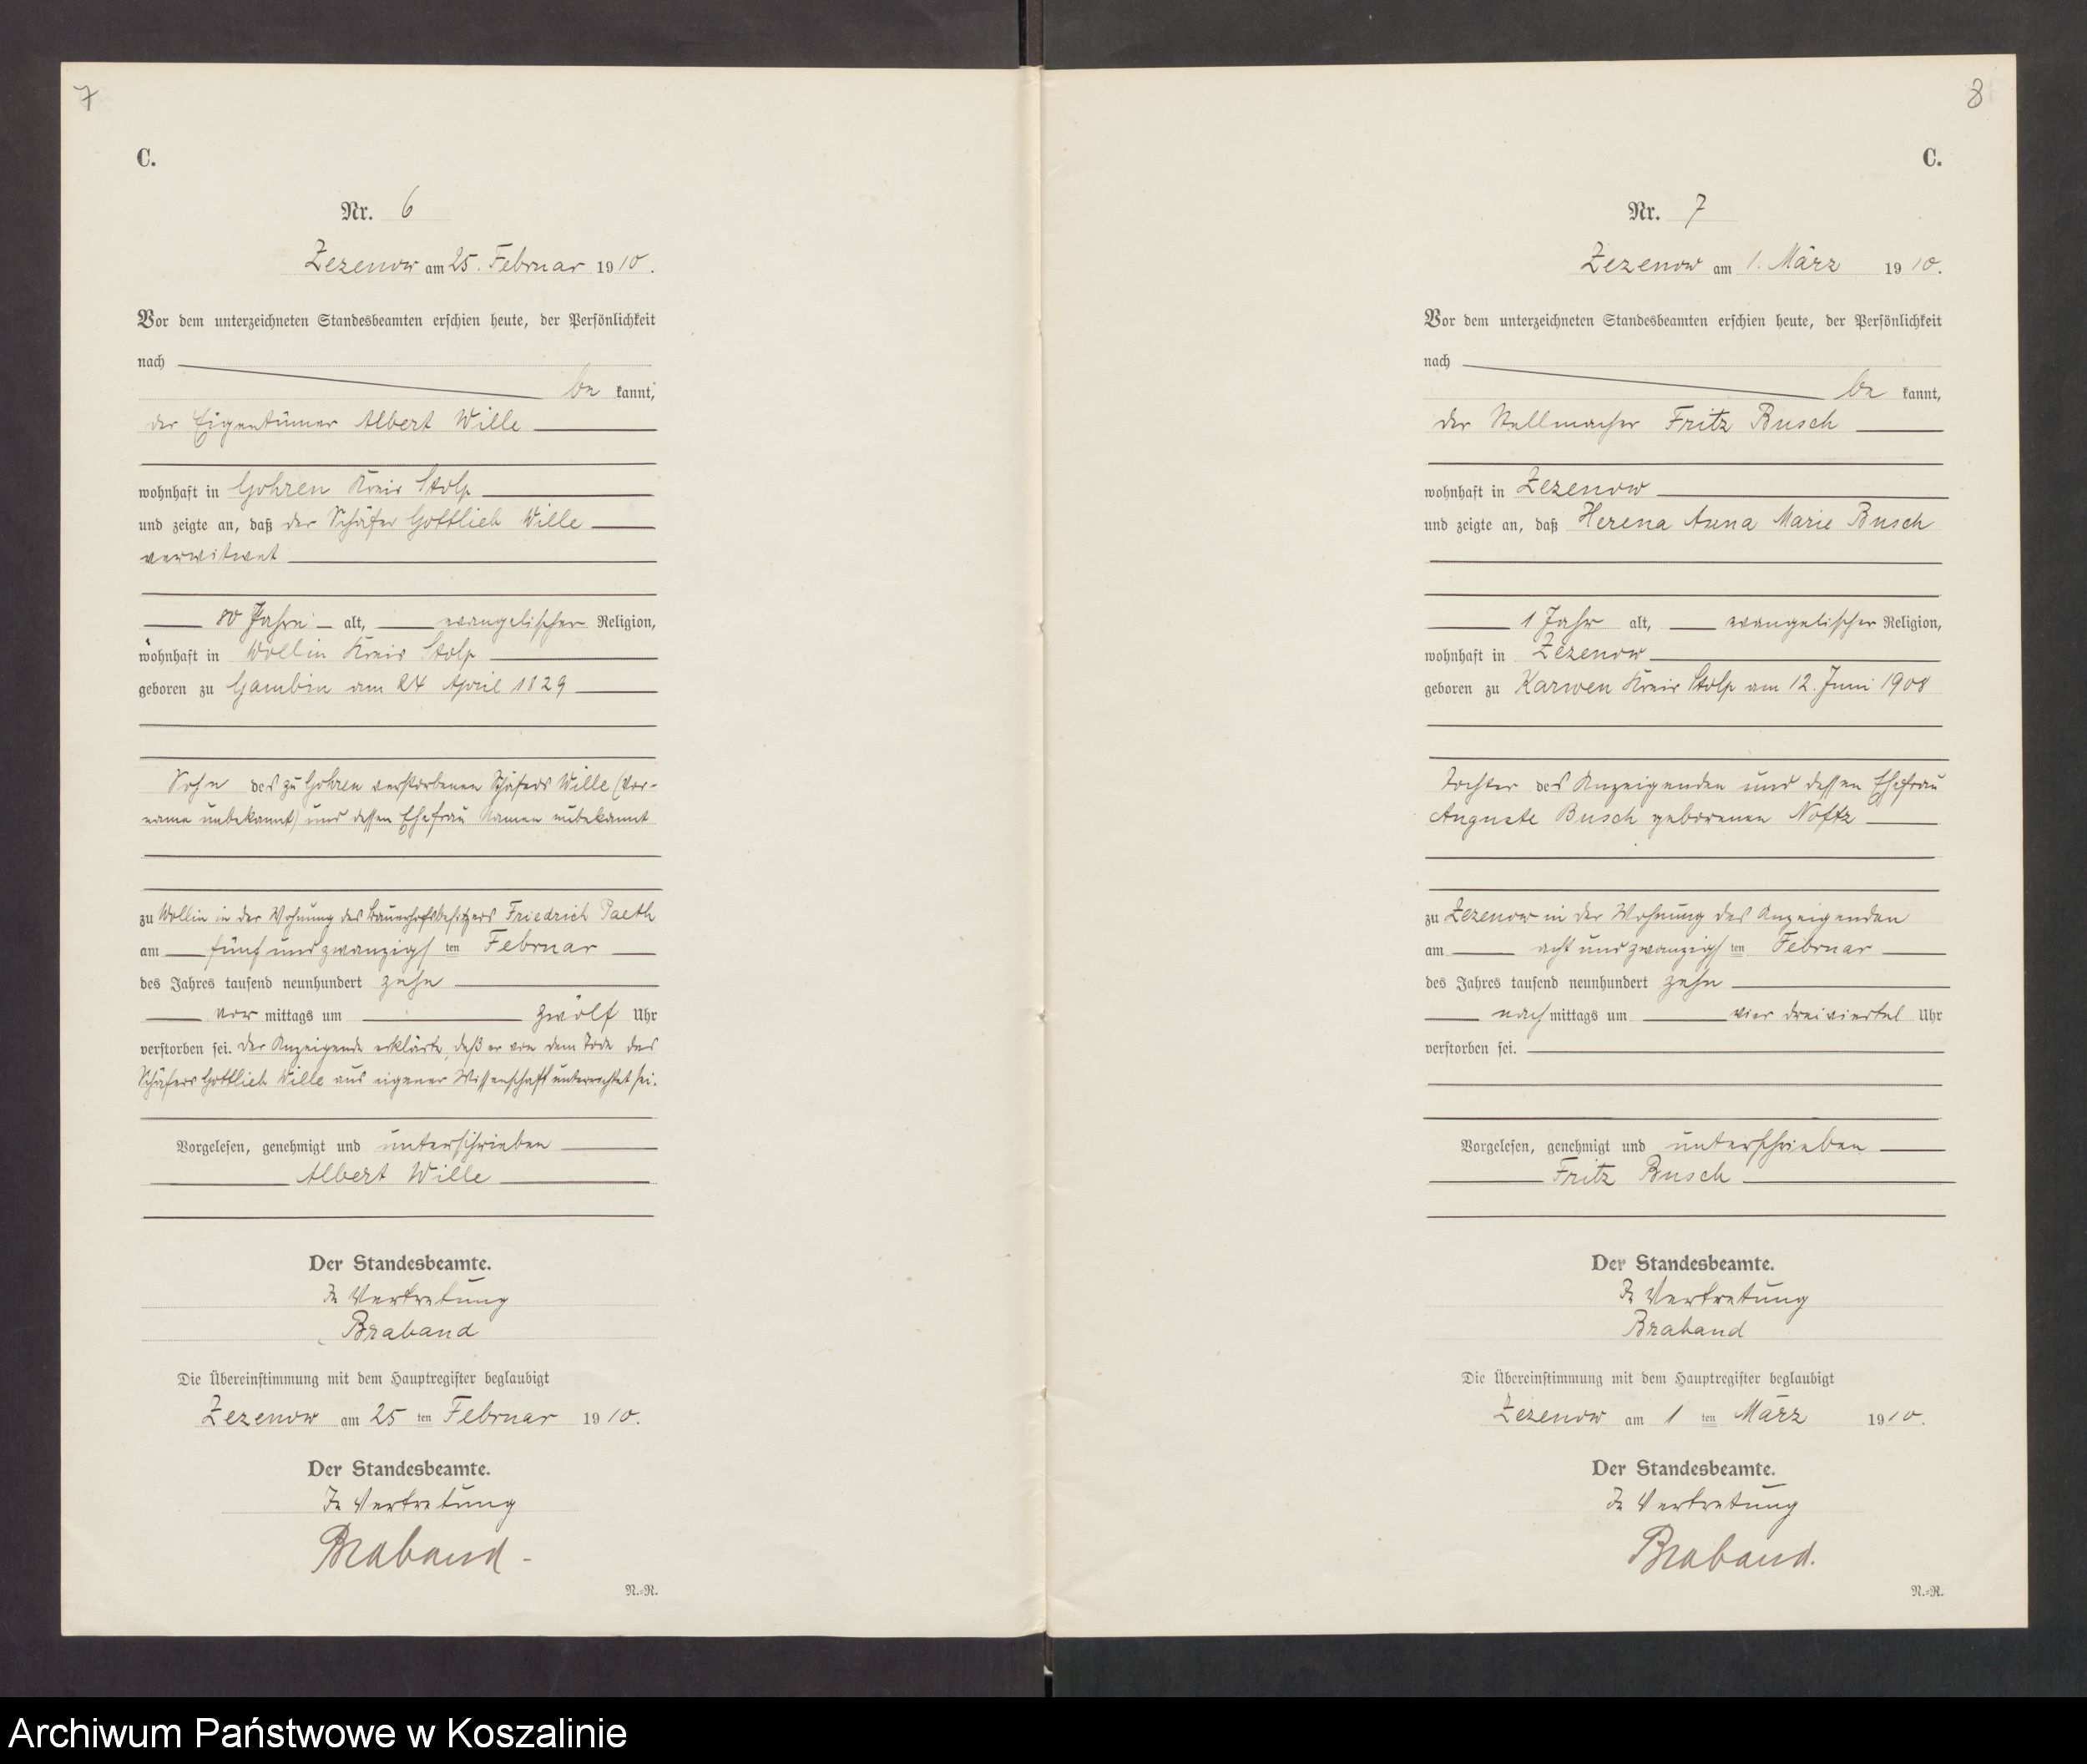 7
C.
Nr. 6
Zezenow am 25. Februar 1910.
Vor dem unterzeichneten Standesbeamten erschien heute, der Persönlichkeit
nach
be kannt,
der Eigentümer Albert Wille
wohnhaft in Gohren Kreis Stolp
und zeigte an, daß der Schäfer Gottlieb Wille
verwitwet
80 Jahre alt, evangelischer Religion,
wohnhaft in Wollin Kreis Stolp
geboren zu Gambin am 24 April 1829
Sohn des zu Gohren verstorbenen Schäfers Wille (Vor-
name unbekannt) und dessen Ehefrau Namen unbekannt
zu Wollin in der Wohnung des Bauerhofsbesitzers Friedrich Paeth
am fünf und zwanzigs ten Februar
des Jahres tausend neunhundert zehn
vor mittags um zwölf Uhr
verstorben sei. Der Anzeigende erklärte, daß er von dem Tode des
Schäfers Gottlieb Wille aus eigener Wissenschaft unterrichtet sei.
Vorgelesen, genehmigt und unterschrieben
Albert Wille
Der Standesbeamte.
In Vertretung
Braband
Die Übereinstimmung mit dem Hauptregister beglaubigt
Zezenow am 25 ten Februar 1910.
Der Standesbeamte.
In Vertretung
Braband
N.-R.
8
C.
Nr. 7
Zezenow am 1. März 1910.
Vor dem unterzeichneten Standesbeamten erschien heute, der Persönlichkeit
nach
be kannt,
der Stellmacher Fritz Busch
wohnhaft in Zezenow
und zeigte an, daß Herena Anna Marie Busch
1 Jahr alt, evangelischer Religion,
wohnhaft in Zezenow
geboren zu Karwen Kreis Stolp am 12. Juni 1908
Tochter des Anzeigenden und dessen Ehefrau
Auguste Busch geborenen Noftz
zu Zezenow in der Wohnung des Anzeigenden
am acht und zwanzigs ten Februar
des Jahres tausend neunhundert zehn
nach mittags um vier dreiviertel Uhr
verstorben sei.
Vorgelesen, genehmigt und unterschrieben
Fritz Busch
Der Standesbeamte.
In Vertretung
Braband
Die Übereinstimmung mit dem Hauptregister beglaubigt
Zezenow am 1 ten März 1910.
Der Standesbeamte.
In Vertretung
Braband.
N.-R.
Archiwum Państwowe w Koszalinie